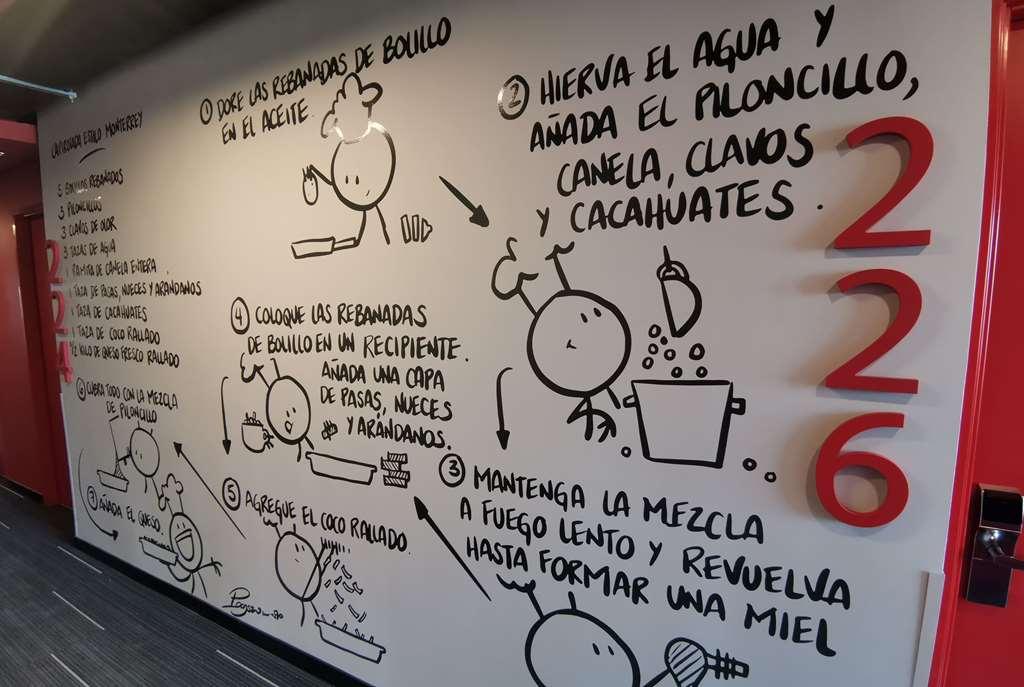 CAPIROTADA ESTILO MONTERREY
5 BOLILLOS REBANADOS
3 PILONCILLOS
3 CLAVOS DE OLOR
3 TAZAS DE AGUA
1 RAMITA DE CANELA ENTERA
1 TAZA DE PASAS, NUECES Y ARÁNDANOS
1 TAZA DE CACAHUATES
1 TAZA DE COCO RALLADO
1/2 KILO DE QUESO FRESCO RALLADO
1 DORE LAS REBANADAS DE BOLILLO
EN EL ACEITE.
2 HIERVA EL AGUA Y
AÑADA EL PILONCILLO,
CANELA, CLAVOS
Y CACAHUATES.
3 MANTENGA LA MEZCLA
A FUEGO LENTO Y REVUELVA
HASTA FORMAR UNA MIEL
4 COLOQUE LAS REBANADAS
DE BOLILLO EN UN RECIPIENTE.
AÑADA UNA CAPA
DE PASAS, NUECES
Y ARÁNDANOS.
5 AGREGUE EL COCO RALLADO.
6 CUBRA TODO CON LA MEZCLA
DE PILONCILLO
7 AÑADA EL QUESO.
224
2226